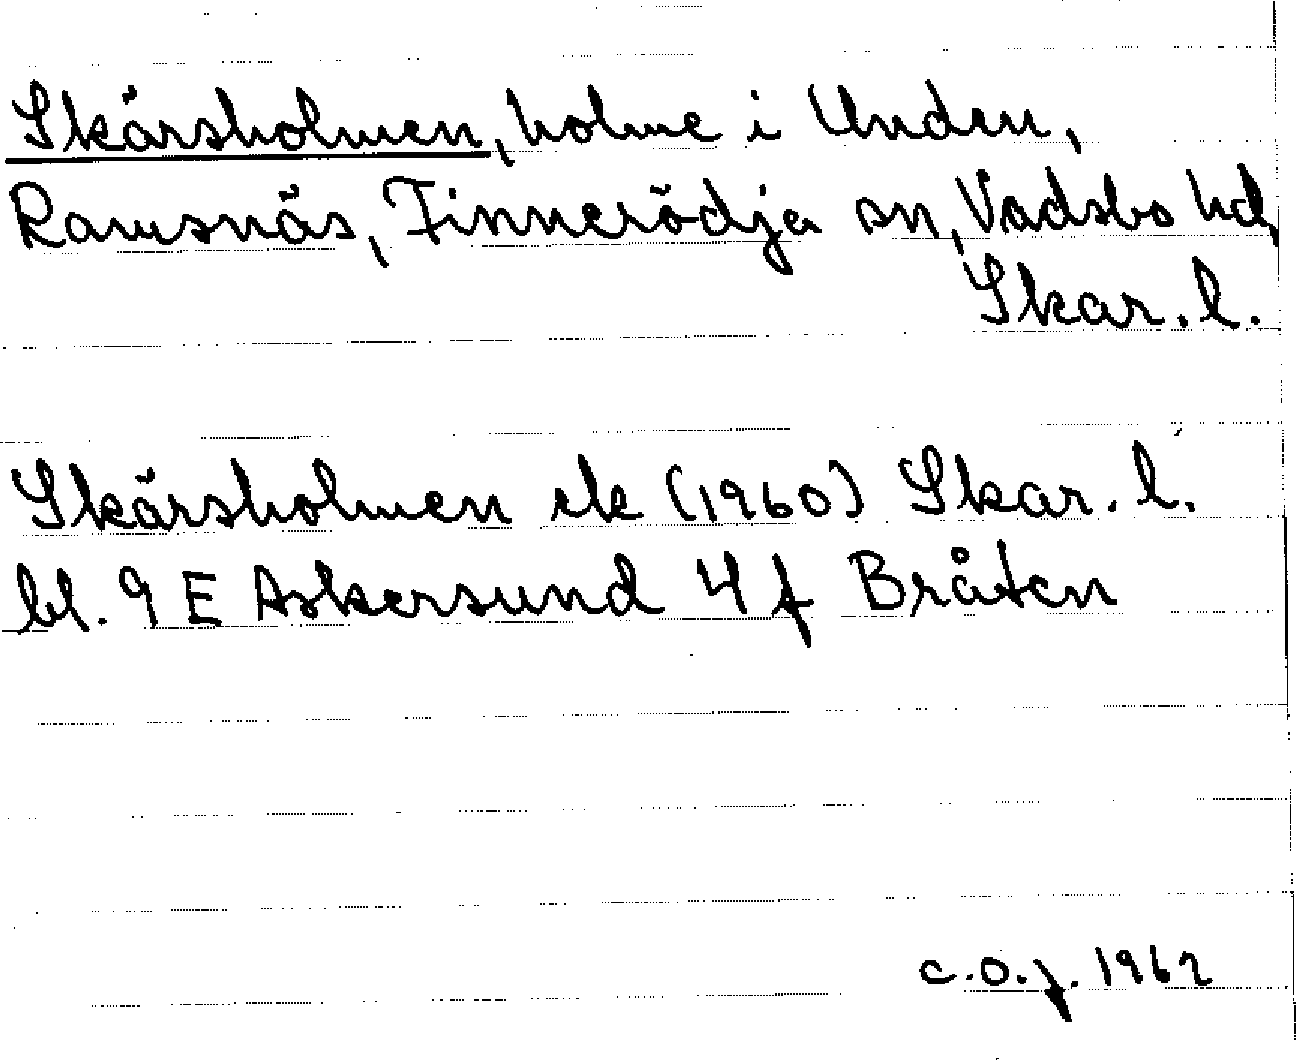 Skärsholmen, holme i Unden,
Ramsnäs, Finnerödja sn, Vadsbo hd,
Skar. l.
Skärsholmen ek (1960) Skar. l.
bl. 9 E Askersund 4 f Bråten
C.O.J. 1962